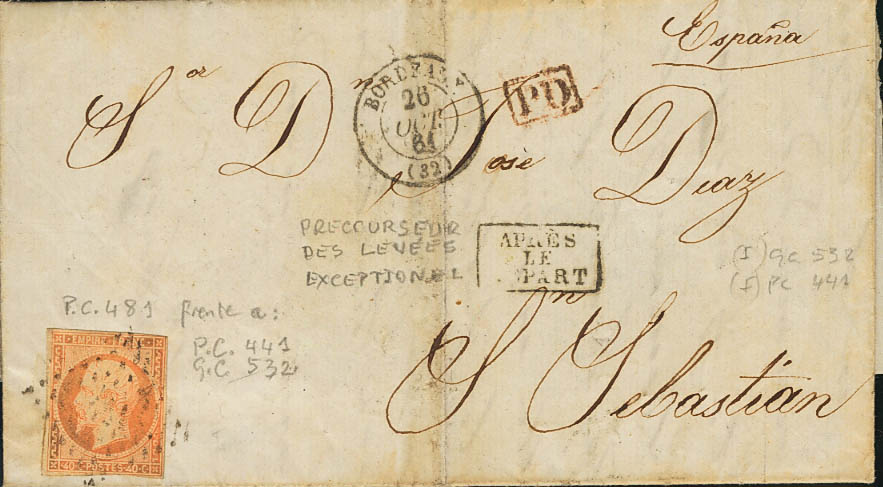 España
Sor Dn José Diaz
BORDEAUX
26
OCT.
61
(32)
PD
PRECOURSEUR
DES LEVÉES
EXCEPTIONEL
APRÈS
LE
DÉPART
(I) GC 532
(I) PC 441
P.C. 481 frente a:
P.C. 441
G.C. 532
Sn Sebastián
EMPIRE
40 C POSTES 40 C